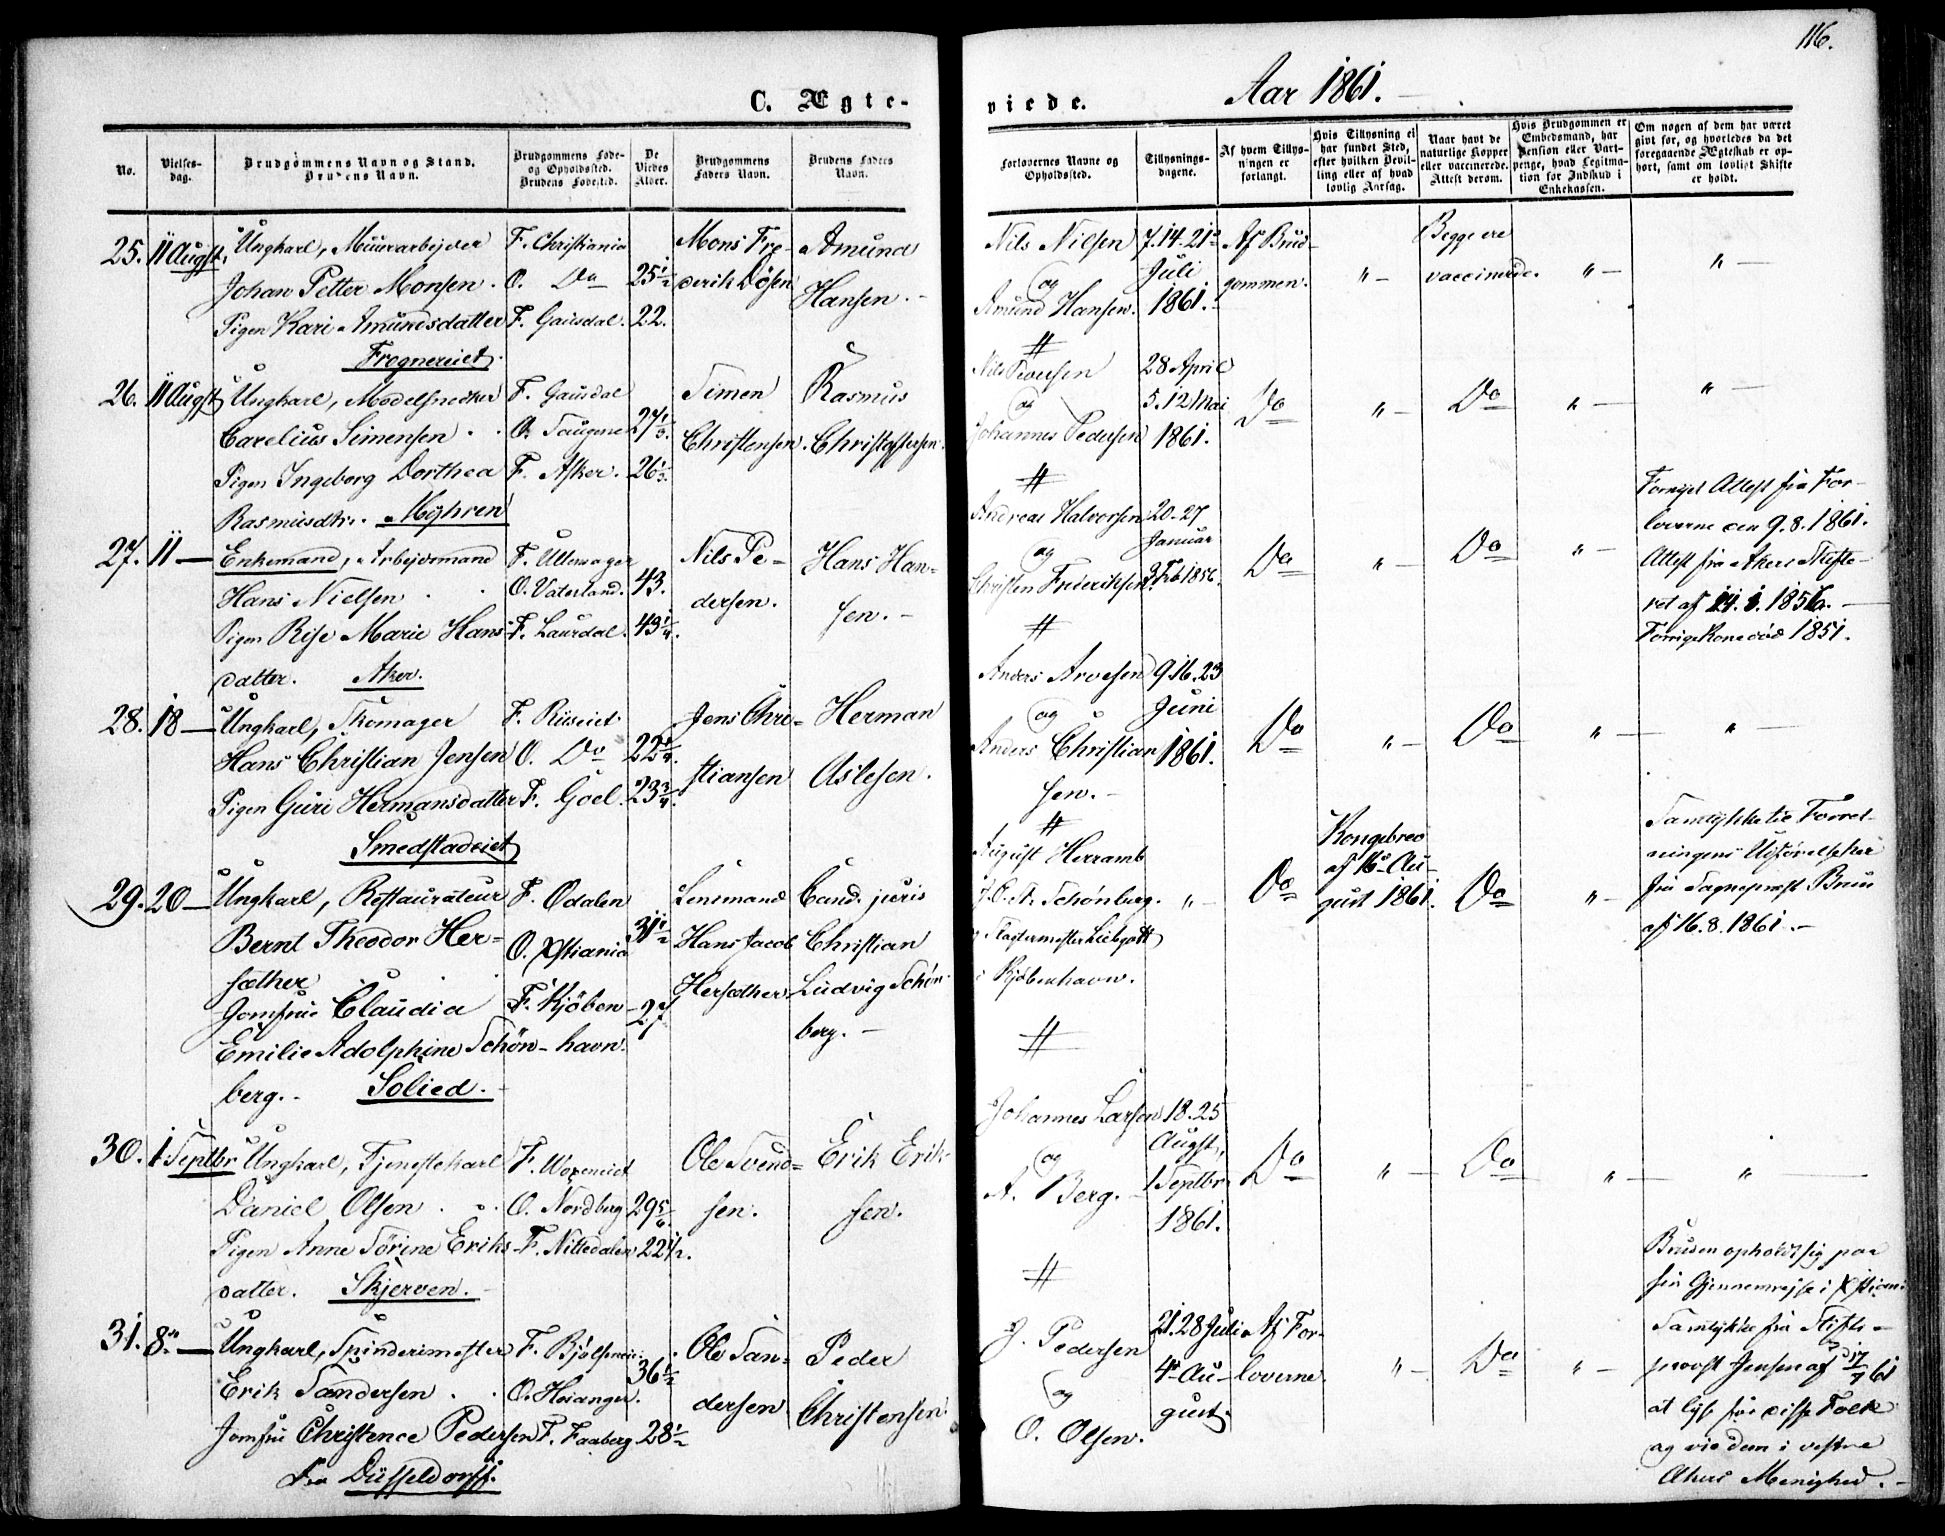 116.
C. Ægte-
viede. Aar 1861.
No.
Vielses-
dag.
Brudgommens Navn og Stand.
Brudens Navn.
Brudgommens Føde-
og Opholdssted.
Brudens Fødested.
De
Viedes
Alder.
Brudgommens
Faders Navn.
Brudens Faders
Navn.
Forlovernes Navne og
Opholdssted.
Tillysnings-
dagene.
Af hvem Tillys-
ningen er
forlangt.
Hvis Tillysning ei
har fundet Sted,
efter hvilken Bevil-
ling eller af hvad
lovlig Aarsag.
Naar havt de
naturlige Kopper
eller vaccinerede.
Attest derom.
Hvis Brudgommen er
Embedsmand, har
Pension eller Vart-
penge, hvad Legitma-
tion for Indskud i
Enkekassen.
Om nogen af dem har været
givt før, og hvorledes da det
foregaaende Ægteskab er op-
hørt, samt om lovligt Skifte
er holdt.
25. 11 Augst.
Ungkarl, Muurarbejder
Johan Petter Monsen.
Pigen Kari Amundsdatter
Frognereiet.
F. Christiania
O. Do
F. Gausdal.
25½
22.
Mons Fre-
derik Døsen
Amund
Hansen.-
Nils Nilsen
og
Amund Hansen.
7. 14. 21de
Juli
1861.
Af Brud-
gommen.
" -
Begge ere
vaccinerede.
" -
" -
26. 11 Augst
Ungkarl, Modelsnedker
Carelius Simensen . .
Pigen Ingeborg Dorthea
Rasmusdtr. Myhren
F. Gausdal
O.
F. Asker.
Simen
Christensen.
Rasmus
Christophersen.
#
Nils
og
Johannes Pedersen
28 April
5. 12 Mai
1861.
Do
" -
Do
" -
" -
27. 11 -
Enkemand, Arbejdsmand
Hans Nielsen . .
Pigen Rise Marie Hans-
datter. Aker.
F. Ullensager
O. Vaterland.
F. Laurdal.
43.
43¼.
Nils Pe-
dersen.
Hans Han-
sen. -
#
Andreas Halvorsen
og
Christen Frederiksen.
20. 27
Januar
3 Feb 1856.
Do
" -
Do
" -
Fornyet Attest fra For-
loverne den 9. 8. 1861.
Attest fra Akers Skifte-
ret af
Forrige Kone død 1851.
28. 18 -
Ungkarl, Skomager
Hans Christian Jensen
Pigen Guri Hermansdatter
Smedstadeiet
F. Riiseiet
O. Do
F. Goel.
23¾.
Jens Chri-
stiansen
Herman
Aslesen.
#
Anders Arvesen
og
Anders Christian
sen.-
9. 16. 23
Juni
1861.
Do
" -
Do
" -
" -
29. 20 -
Ungkarl, Restaurateur
Bernt Theodor Her-
sæther
Jomfrue Claudia
Emilie Adolphine Schön-
berg.- Solied.-
F. Odalen
O. Xstiania
F. Kjöben-
havn.
31½
27
Lensmand
Hans Jacob
Hersæther
Cand. juris
Christian
Ludvig Schön
berg. -
#
August Herramb
Schönberg.
Liebgott
i Kjöbenhavn.
" -
Do
Kongebrev
af 16de Au-
gust 1861.
Do
" -
Samtykke til Forret-
ningens Udførelse her
fra Sognepræst Bruun
af 16. 8. 1861.-
30. 1 Septbr
Ungkarl, Tjenestekarl
Daniel Olsen . .
Pigen Anne Sörine Eriks-
datter. Skjerven.-
F. Woxeneiet
O. Nordberg
F. Nittedalen
29⅚
22½.
Ole Svend-
sen.
Erik Erik-
sen.
#
Johannes Larsen
og
A. Berg. -
18. 25
Augst,
1 Septbr
1861.
Do
" -
Do
" -
" -
31. 8de -
Ungkarl, Spinderimester
Erik Sandersen . .
Jomfru Christence Pedersen
fra Düsseldorff.
F. Bjölseneie.
O.
F. Faaberg
36½
28½
Ole San-
dersen
Peder
Christensen.
#
J. Pedersen
og
O. Olsen.
21. 28 Juli
4de Au-
gust.
Af For-
loverne
" -
Do
" -
Bruden opholdt sig paa
sin Gjennemrejse i Xstiania
Samtykke fra Stifts-
provst Jensen af 17/7 61
at lyse for disse Folk
og vie dem i vestre
Akers Menighed. -